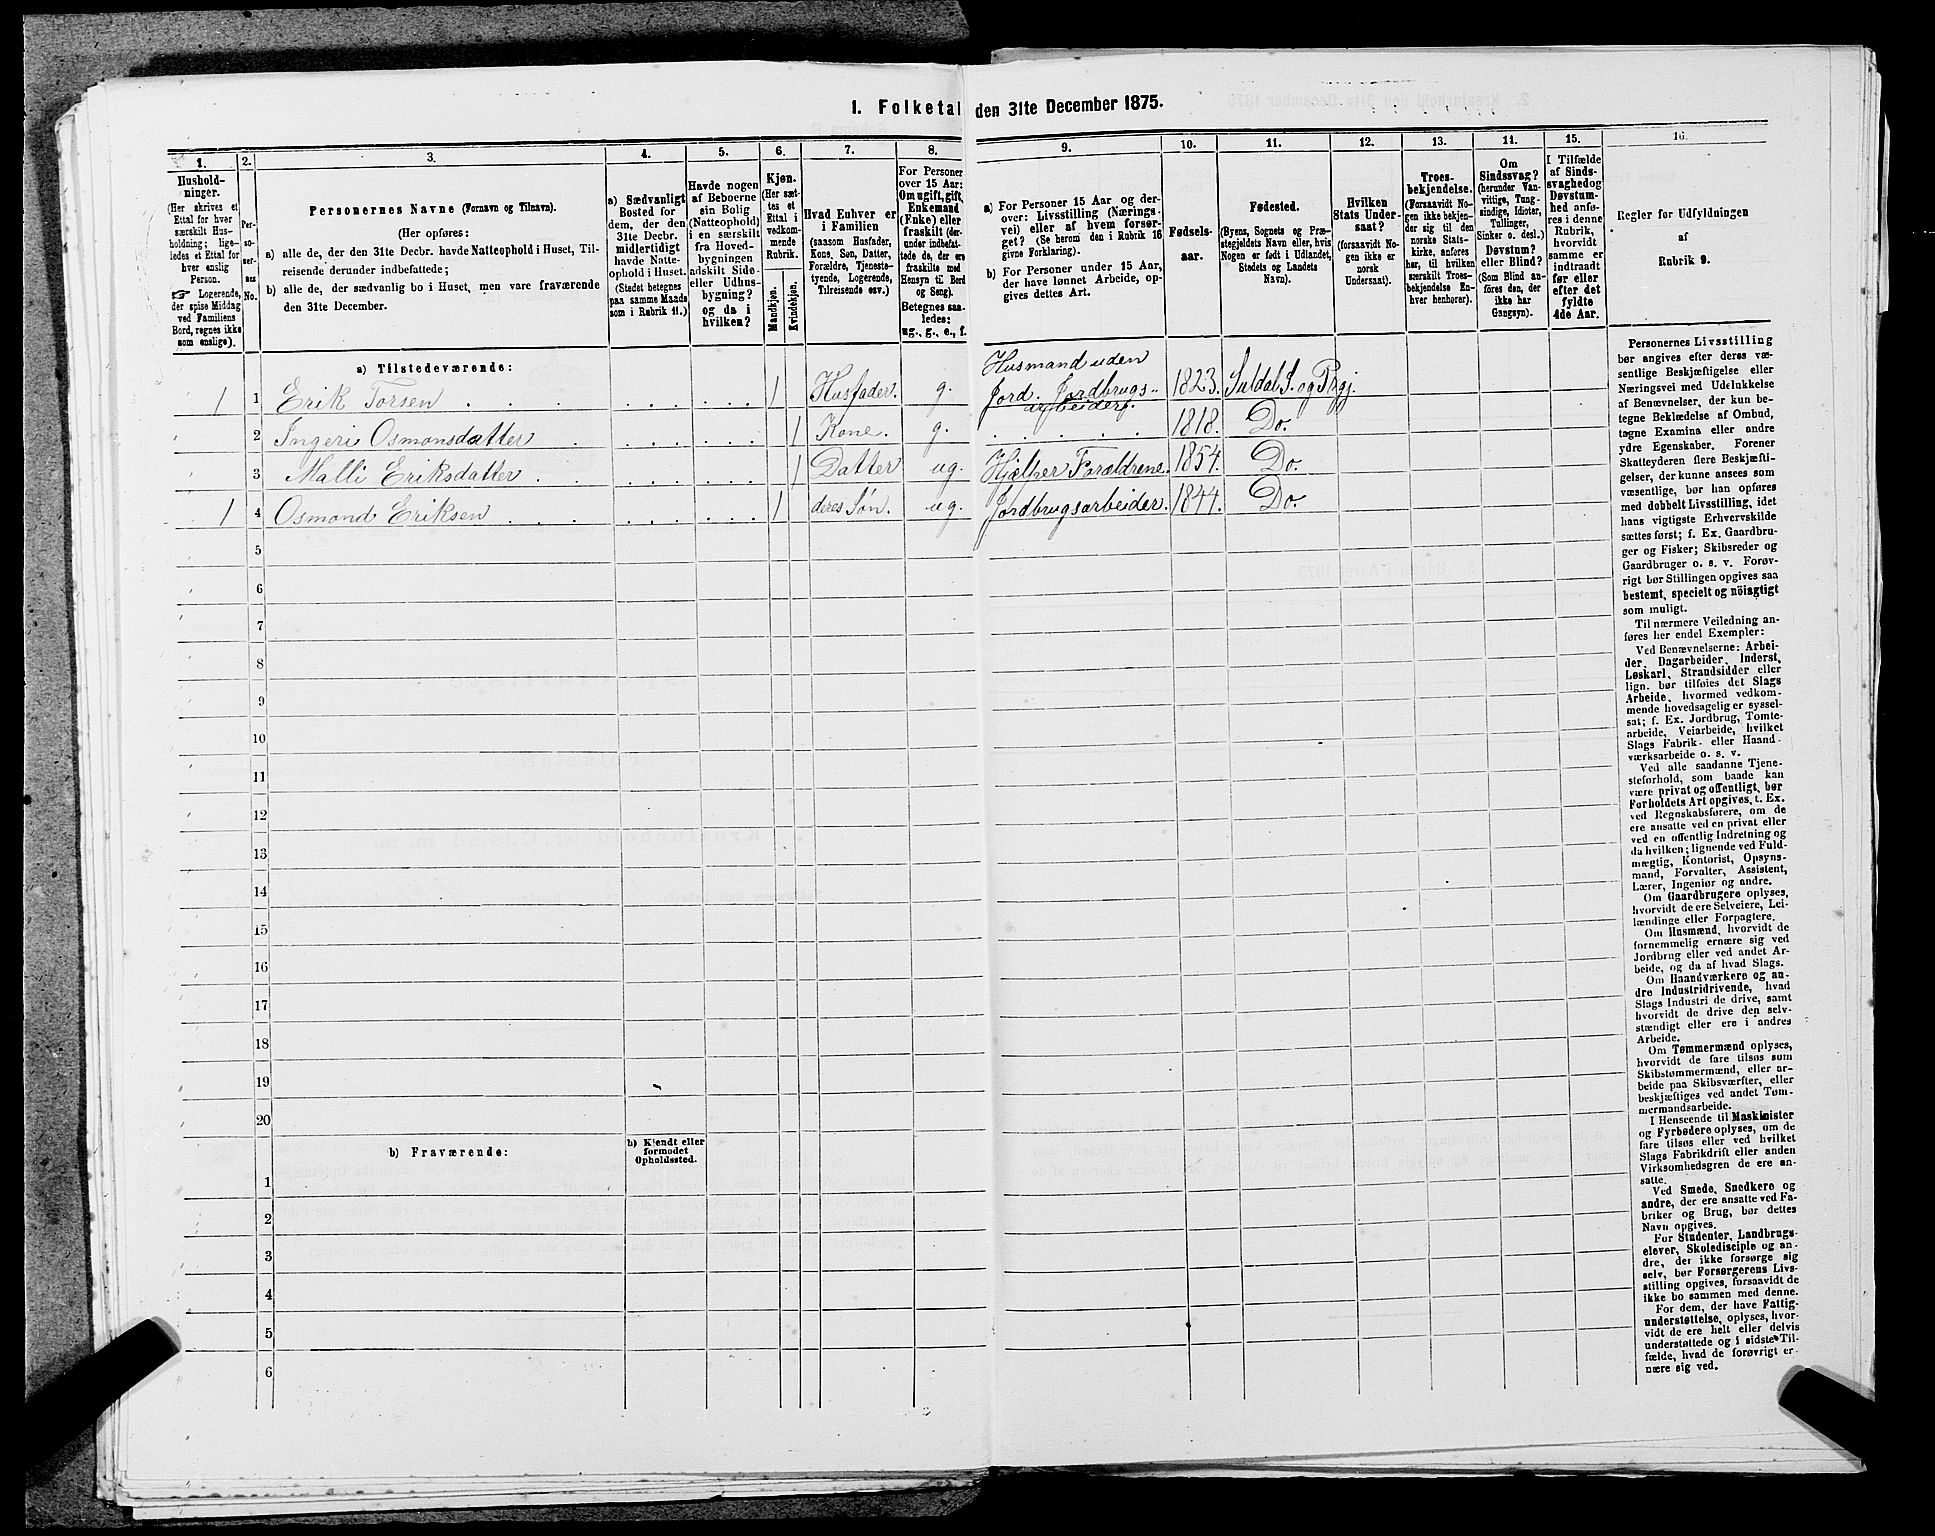 1. Folketal den 31te December 1875.
1.
Hushold-
ninger.
(Her skrives et
Ettal for hver
særskilt Hus-
holdning; lige-
ledes et Ettal for
hver enslig
Person.
☞ Logerende,
der spise Middag
ved Familiens
Bord, regnes ikke
som enslige).
2.
Per-
so-
ner-
nes
No.
3.
Personernes Navne (Fornavn og Tilnavn).
(Her opføres:
a) alle de, der den 31te Decbr. havde Natteophold i Huset, Til-
reisende derunder indbefattede;
b) alle de, der sædvanlig bo i Huset, men vare fraværende
den 31te December.
4.
a) Sædvanligt
Bosted for
dem, der den
31te Decbr.
midlertidigt
havde Natte-
ophold i Huset.
(Stedet betegnes
paa samme Maade
som i Rubrik 11.)
5.
Havde nogen
af Beboerne
sin Bolig
(Natteophold)
i en særskilt
fra Hoved-
bygningen
adskilt Side-
eller Udhus-
bygning?
og da i
hvilken?
6.
Kjøn.
(Her sæt-
tes et
Ettal i
vedkom-
mende
Rubrik.
Mandkjøn.
Kvindekjøn.
7.
Hvad Enhver er
i Familien
(saasom Husfader,
Kone, Søn, Datter,
Forældre, Tjeneste-
tyende, Logerende,
Tilreisende osv.)
8.
For Personer
over 15 Aar:
Om ugift, gift,
Enkemand
(Enke) eller
fraskilt (der-
under indbefat-
tede de, der ere
fraskilte med
Hensyn til Bord
og Seng).
Betegnes saa-
ledes:
ug., g., e., f.
9.
a) For Personer 15 Aar og der-
over: Livsstilling (Nærings-
vei) eller af hvem forsør-
get? (Se herom den i Rubrik 16
givne Forklaring).
b) For Personer under 15 Aar,
der have lønnet Arbeide, op-
gives dettes Art.
10.
Fødsels-
aar.
11.
Fødested.
(Byens, Sognets og Præ-
stegjeldets Navn eller, hvis
Nogen er født i Udlandet,
Stedets og Landets
Navn).
12.
Hvilken
Stats Under-
saat?
(forsaavidt No-
gen ikke er
norsk
Undersaat).
13.
Troes-
bekjendelse.
(Forsaavidt No-
gen ikke bekjen-
der sig til den
norske Stats-
kirke, anføres
her, til hvilken
særskilt Troes-
bekjendelse En-
hver henhører).
14.
Om
Sindssvag?
(herunder Van-
vittige, Tung-
sindige, Idioter,
Tullinger,
Sinker o. desl.)
Døvstum?
eller Blind?
(Som Blind an-
føres den, der
ikke har
Gangsyn).
15.
I Tilfælde
af Sinds-
svaghed og
Døvstum-
hed anfø-
res i denne
Rubrik,
hvorvidt
samme er
indtraadt
før eller
efter det
fyldte
4de Aar.
16.
Regler for Udfyldningen
af
Rubrik 9.
a) Tilstedeværende:
Husmand uden
1 1 Erik Torsen 1 Husfader. g. Jord. Jordbrugs- 1823. Suldal S. og Prgj.
arbeider.
2 Ingeri Osmonsdatter 1 Kone. g. 1818. Do.
3 Malli Eriksdatter 1 Datter ug. Hjælper Forældrene. 1854. Do.
1 4 Osmond Eriksen 1 deres Søn. ug. Jordbrugsarbeider. 1844. Do.
5
6
7
8
9
10
11
12
13
14
15
16
17
18
19
20
b) Fraværende:
b) Kjendt eller
formodet
Opholdssted.
1
2
3
4
5
6
Personernes Livsstilling
bør angives efter deres væ-
sentlige Beskjæftigelse eller
Næringsvei med Udelukkelse
af Benævnelser, der kun be-
tegne Beklædelse af Ombud,
tagne Examina eller andre
ydre Egenskaber. Forener
Skatteyderen flere Beskjæfti-
gelser, der kunne ansees som
væsentlige, bør han opføres
med dobbelt Livsstilling, idet
hans vigtigste Erhvervskilde
sættes først; f. Ex. Gaardbru-
ger og Fisker; Skibsreder og
Gaardbruger o. s. v. Forøv-
rigt bør Stillingen opgives saa
bestemt, specielt og nöiagtigt
som muligt.
Til nærmere Veiledning an-
føres her endel Exempler:
Ved Benævnelserne: Arbei-
der, Dagarbeider, Inderst,
Løskarl, Strandsidder eller
lign. bør tilføies det Slags
Arbeide, hvormed vedkom-
mende hovedsagelig er syssel-
sat; f. Ex. Jordbrug, Tomte-
arbeide, Veiarbeide, hvilket
Slags Fabrik- eller Haand-
værksarbeide o. s. v.
Ved alle saadanne Tjene-
steforhold, som baade kan
være privat og offentligt, bør
Forholdets Art opgives, t. Ex.
ved Regnskabsførere, om de
ere ansatte ved en privat eller
ved en offentlig Indretning og
da hvilken; lignende ved Fuld-
mægtig, Kontorist, Opsyns-
mand, Forvalter, Assistent,
Lærer, Ingeniør og andre.
Om Gaardbrugere oplyses,
hvorvidt de ere Selveiere, Lei-
lændinge eller Forpagtere.
Om Husmænd, hvorvidt de
fornemmelig ernære sig ved
Jordbrug eller ved andet Ar-
beide, og da af hvad Slags.
Om Haandværkere og an-
dre Industridrivende, hvad
Slags Industri de drive, samt
hvorvidt de drive den selv-
stændigt eller ere i andres
Arbeide.
Om Tømmermænd oplyses,
hvorvidt de fare tilsøs som
Skibstømmermænd, eller ar-
beide paa Skibsværfter, eller
beskjæftiges ved andet Tøm-
mermandsarbeide.
I Henseende til Maskinister
og Fyrbødere oplyses, om de
fare tilsøs eller ved hvilket
Slags Fabrikdrift eller anden
Virksomhedsgren de ere an-
satte.
Ved Smede, Snedkere og
andre, der ere ansatte ved Fa-
briker og Brug, bør dettes
Navn opgives.
For Studenter, Landbrugs-
elever, Skoledisciple og an-
dre, der ikke forsørge sig
selv, bør Forsørgerens Livs-
stilling opgives, forsaavidt de
ikke bo sammen med denne.
For dem, der have Fattig-
understøttelse, oplyses, hvor-
vidt de ere helt eller delvis
understøttede og i sidste Til-
fælde, hvad de forøvrigt er-
nære sig ved.